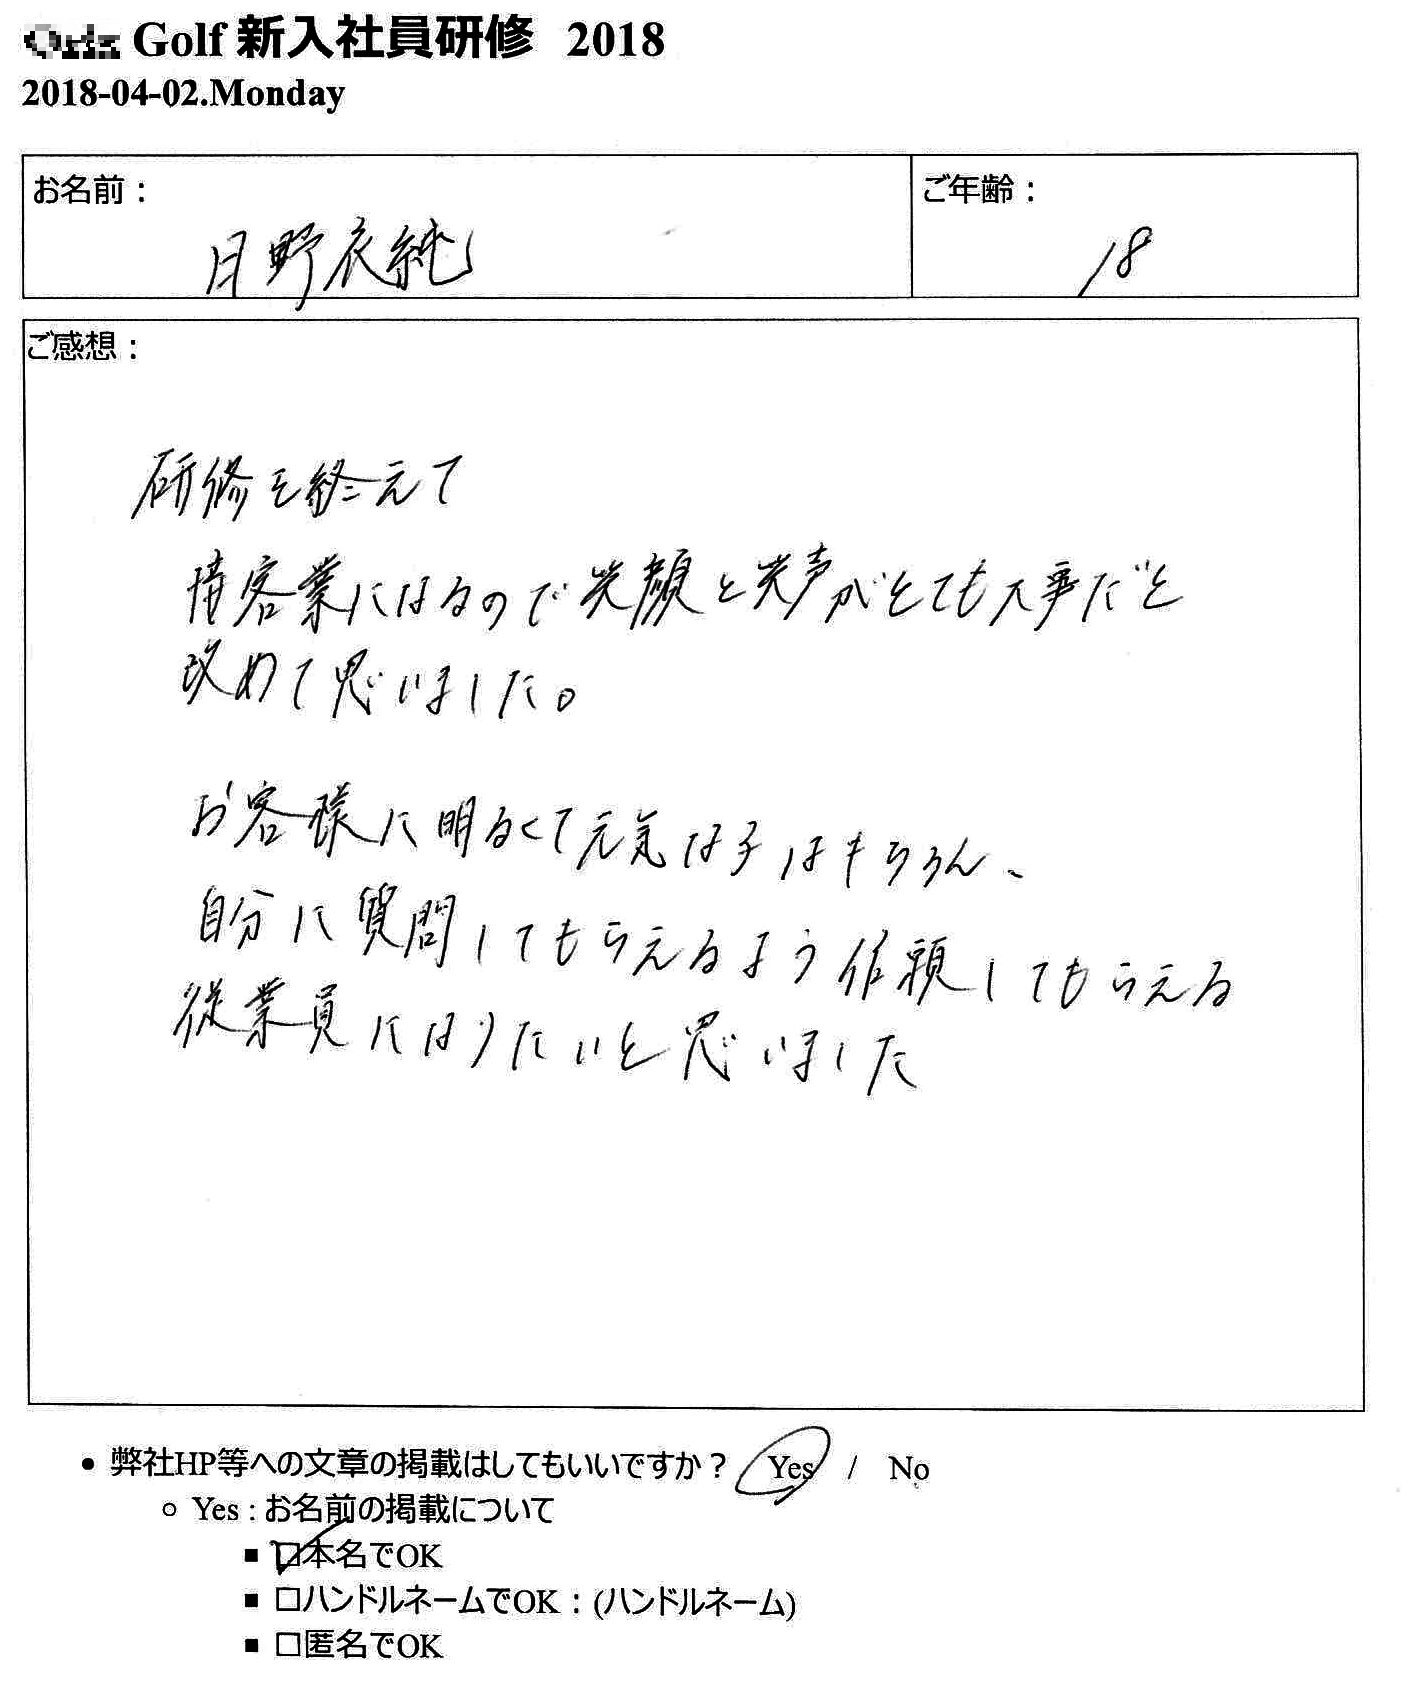 Golf 新入社員研修 2018
2018-04-02.Monday
お名前：
ご年齢：
日野衣純
18
ご感想：
研修を終えて
接客業になるので笑顔と笑声がとても大事だと
改めて思いました。
お客様に明るくて元気な子はもちろん、
自分に質問してもらえるよう信頼してもらえる
従業員になりたいと思いました
• 弊社HP等への文章の掲載はしてもいいですか？ Yes / No
○ Yes : お名前の掲載について
■ □本名でOK
■ □ハンドルネームでOK：(ハンドルネーム)
■ □匿名でOK